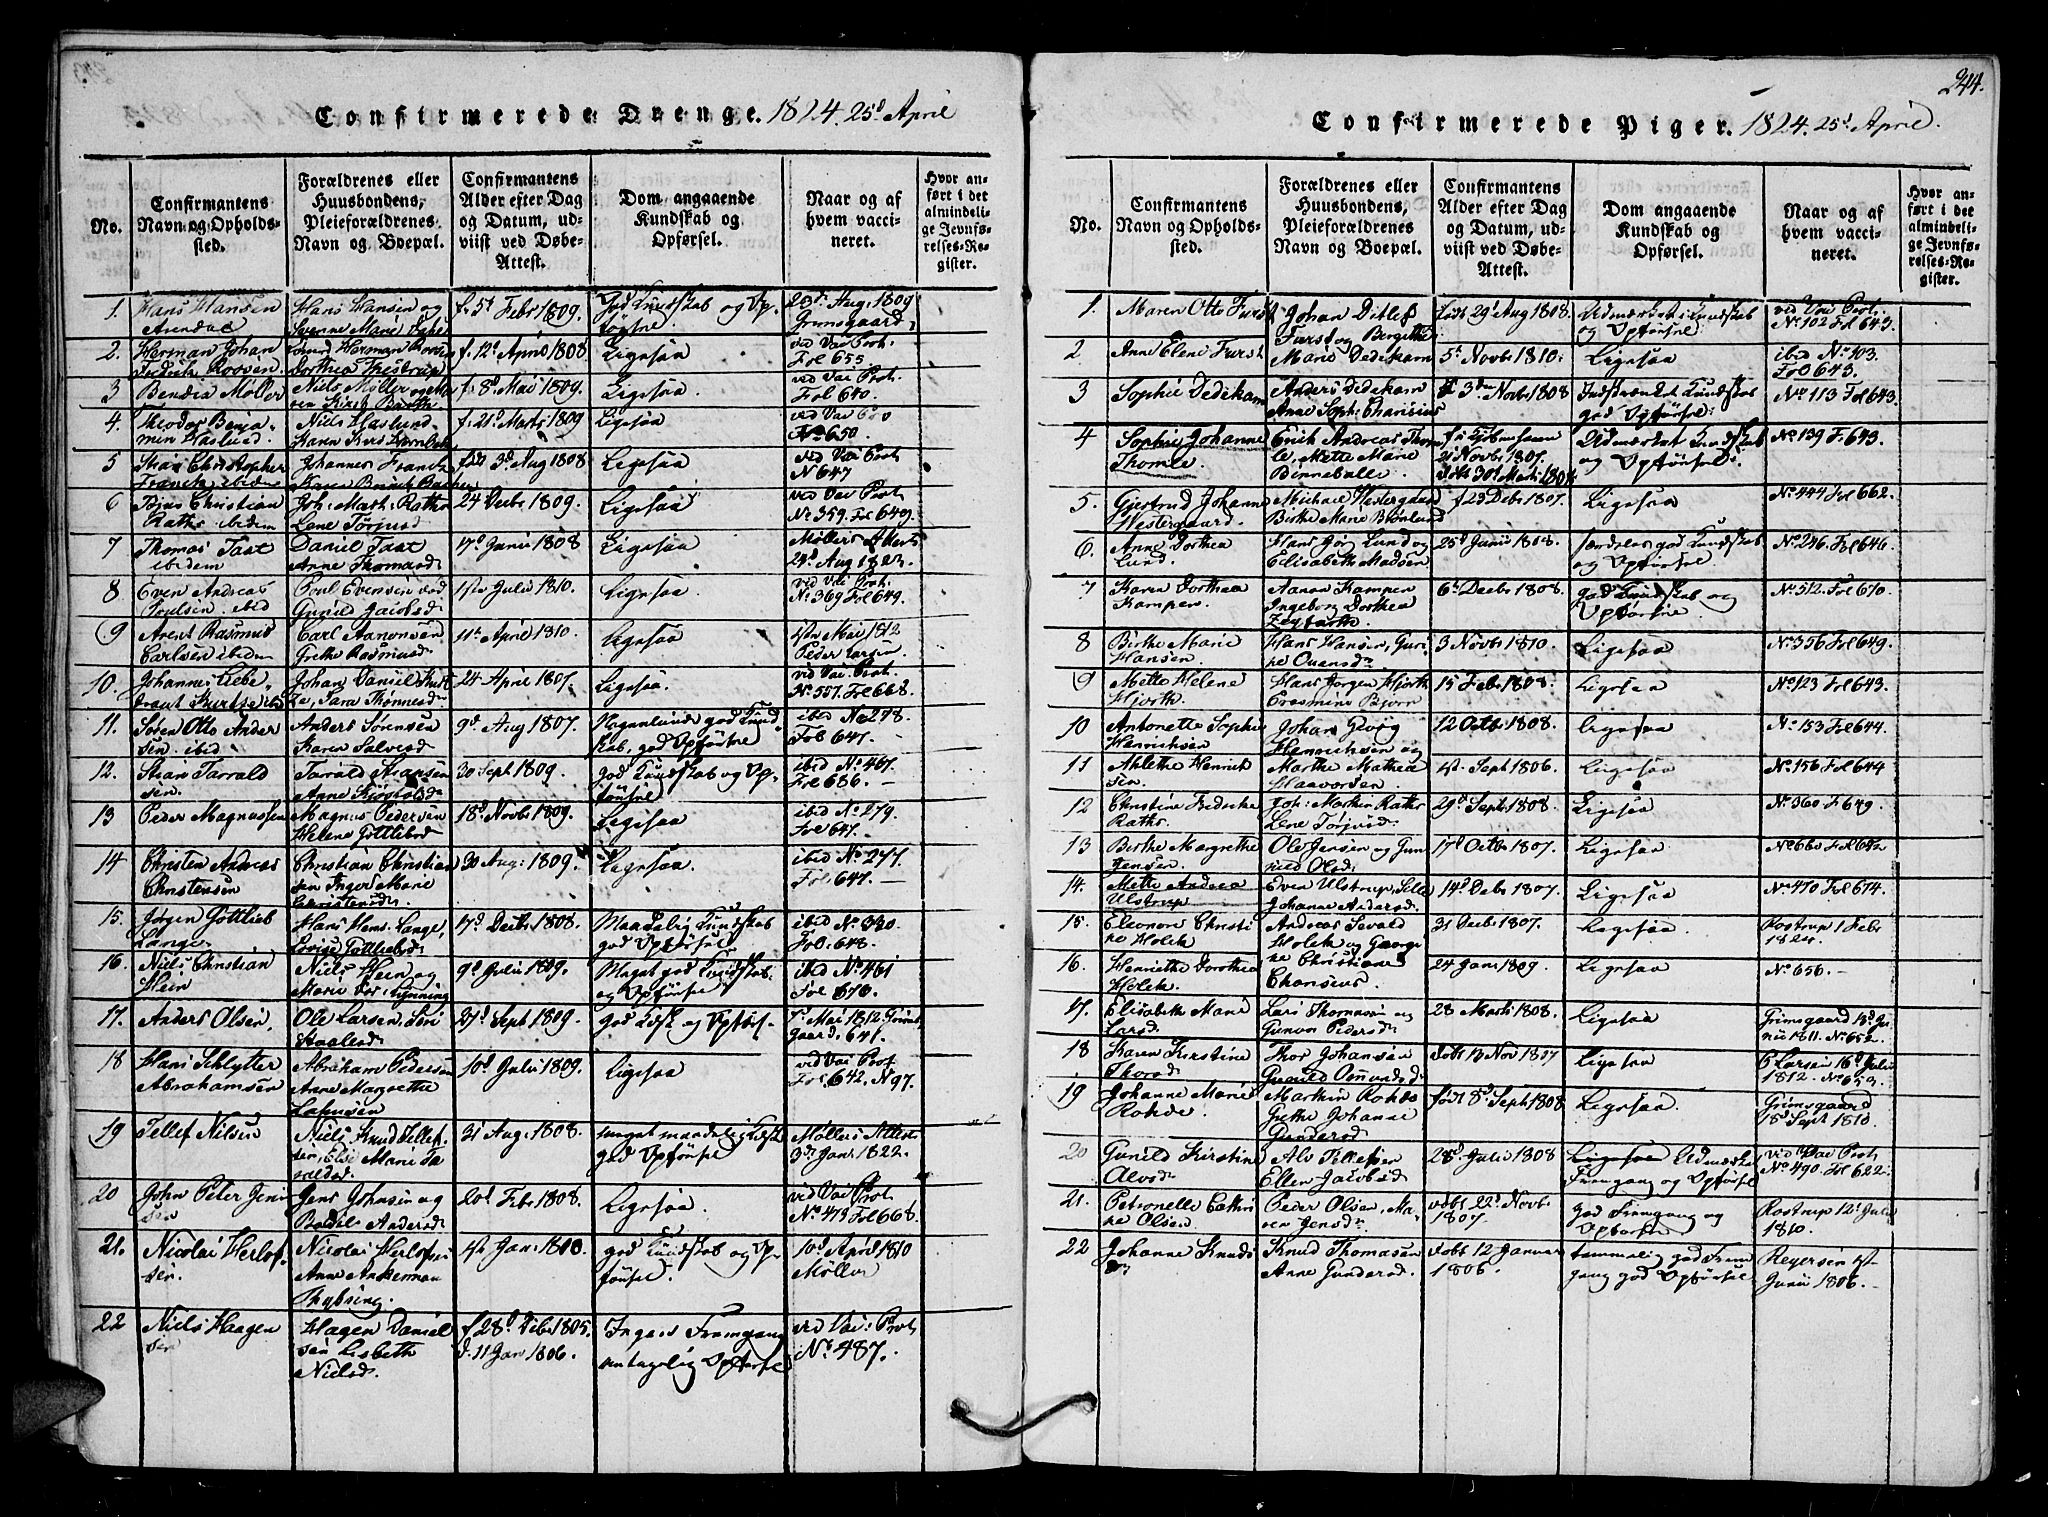 244.
Confirmerede Drenge. 1824. 25d April
No.
Confirmantens Navn og Opholdssted.
Forældrenes eller Huusbondens, Pleieforældrenes Navn og Boepæl.
Confirmantens Alder efter Dag og Datum, udviist ved Døbe-Attest.
Dom angaaende Kundskab og Opførsel.
Naar og af hvem vaccineret.
Hvor anført i det almindelige Jevnførelses-Register.
1. Hans Hansen Arendal
Hans Hansen og Marie
f. 5t Febr 1809.
god Kundskab og Opførsel
23d Aug. 1809 Grimsgaard
2. Herman Johan Fredrich Roosen
Herman Roosen Dorthea Thestrup
f. 12d April 1808
Ligesaa
ved Vac Prot. Fol 655
3 Bendix Møller
Niels Møller og
f. 8d Mai 1809.
Ligesaa
ved Vac Prot. Fol 640.
4. Theodor Benjamin Haslund
Niels Haslund
f. 21d Marts 1809
Ligesaa
No 650
5 Christopher Franck ibidem
Johannes Franck
3d Aug 1808
Ligesaa
ved Vac Prot. N 647
6 Christian Raths ibidem
Joh: Mart: Raths Lene Torjusd
24 Decbr. 1809.
Ligesaa
ved Vac Prot. No 359. Fol 649.
7 Thomas Tast ibidem
Daniel Tast Anne Thomasd
17d Junii 1808
Ligesaa
Møllers Attest 29d Aug
8 Even Andreas Poulsen ibid
Poul Evensen Gunild
1ste Julii 1810.
Ligesaa
ved Vac Prot. No 369 Fol 649.
9 Arent Rasmus Carlsen ibidem
Carl Aanonsen Grethe Rasmusd
11te April 1810.
Ligesaa
1ste Mai 1812 Peder Larsen
10. Johannes Liebetraut Kurtse ibid
Johan Daniel Sara Thønnesd
24 April 1807.
Ligesaa
ved Vac Prot. No 557. Fol 668.
11. Søren Otto Andersen ibid
Anders Sørensen Karen Salvesd
9d Aug 1807.
god Kundskab, god Opførsel
ibid No 278 Fol 647.
12. Stian Tarraldsen
Tarrald Stiansen Anne
30 Sept 1809.
god Kundskab og Opførsel
ibid No 467. Fol 686.
13 Peder Magnussen
Magnus Pedersen Helene Gottliebsd
18d Novbr 1809.
Ligesaa
ibid No 279. Fol 647.
14 Christen Andreas Christensen
Christian Christiansen Inger Marie Christensd
20 Aug: 1809.
Ligesaa
ibid No 277. Fol 647.
15. Jørgen Gottlieb Lange
Hans Lange, Lovise Gottliebsd
17d Decbr 1808.
Maadelig Kundskab god Opførsel
ibid No 330 Fol. 648.
16. Niels Christian Hein
Niels Hein og Marie
9d Julii 1809.
Meget god Kundskab og Opførsel
ibid No 461 Fol 670.
17. Anders Olsen
Ole Larsen, Siri Staalesd
27d Sept 1809.
god Kdsk og Opførs.
7d Mai 1812 Grimsgaard. 641.
18 Hans Schlytter Abrahamsen
Abraham Pedersen Anne Margrethe
10d Julii 1809.
Ligesaa
ved Vac Prot Fol 642. N 97.
19 Tellef Nilsen
Niels Knud Tellefsen, Else Marie
31 Aug: 1808.
meget maadelig Kdsk god Opførsel
Møllers Attest 3d Jan: 1822.
20 John Peter Jensen
Jens Johnsen og Bodil Andersd
20d Febr 1808.
Ligesaa
ved Vac Prot No 413 Fol 668.
21. Nicolai Herlofsen.
Nicolai Herlofsen Anne Ankerman
1ste Jan: 1808.
god Kundskab og Opførsel
10d April 1810 Møller
22 Niels Haagensen
Hagen Danielsen Lisbeth Nielsd
f. 28d Debr 1805. d. 11 Jan 1806.
Ingen Fremgang Opførsel
ved Vac: Prot No 487.
Confirmerede Piger. 1824. 25d April.
No.
Confirmantens Navn og Opholdssted.
Forældrenes eller Huusbondens, Pleieforældrenes Navn og Boepæl.
Confirmantens Alder efter Dag og Datum, udviist ved Døbe-Attest.
Dom angaaende Kundskab og Opførsel.
Naar og af hvem vaccineret.
Hvor anført i det almindelige Jevnførelses-Register.
1. Maren Otto Furst
Johan Ditlef Furst og Bergithe Marie Dedekam
født 29d Aug 1808.
Udmærket i Kundskab og Opførsel
ved Vac Prot. No 102 Fol 643.
2 Anne Elene Furst
5t Novbr 1810.
Ligesaa
ibid No 103. Fol 643.
3 Sophie Dedekam
Anders Dedekam Anne Soph: Charisius
3die Novbr 1808
Indskrænket Kundskab god Opførsel
No 113 Fol 643.
4 Sophie Johanne Thomle
Erich Andreas Thomle, Mette Marie Binneballe
f. i Kjøbenhavn 21 Novbr 1807.
Udmærket Kundskab og Opførsel
No 139 F. 643.
5. Gjertrud Johanne Westergaard.
Michael Westergaard Birthe Marie Brønlund
f 23 Debr 1807.
Ligesaa
No 444 Fol 662.
6. Anne Dorthea Lund.
Hans Jørg Lund og Elisabeth Madsen
25d Junii 1808.
særdeles god Kundskab og Opførsel
No 246 Fol 646.
7 Karen Dorthea Kamper
Aanon Kamper Ingeborg Dorthea
6t Decbr 1808.
god Kundskab og Opførsel
No 512. Fol 670.
8 Birthe Marie Hansen.
Hans Hansen, Guri
3 Novbr 1810.
Ligesaa
No 356 Fol 649.
9 Mette Helene Hjorth
Hans Jørgen Hjorth Erasmine Bjørn
15 Febr 1808.
Ligesaa
No 123 Fol 643.
10 Antonette Sophie Henrichsen
Johan Georg Henrichsen og
12 Octbr 1808.
Ligesaa
No 153 Fol 644.
11 Ahlethe Henricksen
Marthe Mathea Haavorsen
1st. Sept 1806.
Ligesaa
No 156 Fol 644
12 Christine Fredrike Raths.
Joh: Marten Raths Lene Torjusd
29d Sept 1808.
Ligesaa
No 360 F. 649.
13 Birthe Margrethe Jensen
Ole Jensen og Gunnild Olsd
17d Octbr 1807.
Ligesaa
No 660 Fol 642
14. Mette Andrea Ulstrup
Even Ulstrup, Sille Johanne Andersd
14d Debr 1807.
Ligesaa
No 470 Fol 674.
15. Eleonore Christine Holck
Andreas Sevald Holck og Georgine Christiane
31 Decbr 1807.
Ligesaa
Rostrup 1 Febr
16. Henriethe Dorothea Holck
24 Janr 1809.
Ligesaa
No 656.
17. Elisabeth Marie Larsd.
Lars Thomasen og Gunvor Pedersd
28 Marts 1808.
Ligesaa
Grimsgaard 13d Junii 1811. No 652.
18 Karen Kirstine Thorsd
Thor Johansen Gunild Osmundsd
døbt 13 Nov 1807
Ligesaa
Larsen 16d Julii 1812. No 653.
19 Johanne Marie Rohde.
Marthin Rohde Grethe Johanne Gundersd
født 8d Sept 1808
Ligesaa
Grimsgaard 18d Sept 1810.
20 Gunild Kirstine Alvsd
Alv Tellefsen Ellen Jacobsd
28d Julii 1808
Ligesaa Udmærket Fremgang og Opførsel
ved Vac Prot. No 490. Fol 622.
21. Petronelle Cathrine Olsen
Peder Olsen, Maren Jensd
døbt 22d Novbr 1807.
god Fremgang og Opførsel
Rostrup 12d Julii 1810.
22 Johanne Knudsd
Knud Thomasen Anne Gundersd.
døbt 12 Januar 1806.
temmelig god Fremgang god Opførsel
Reyersen 1st Junii 1806.